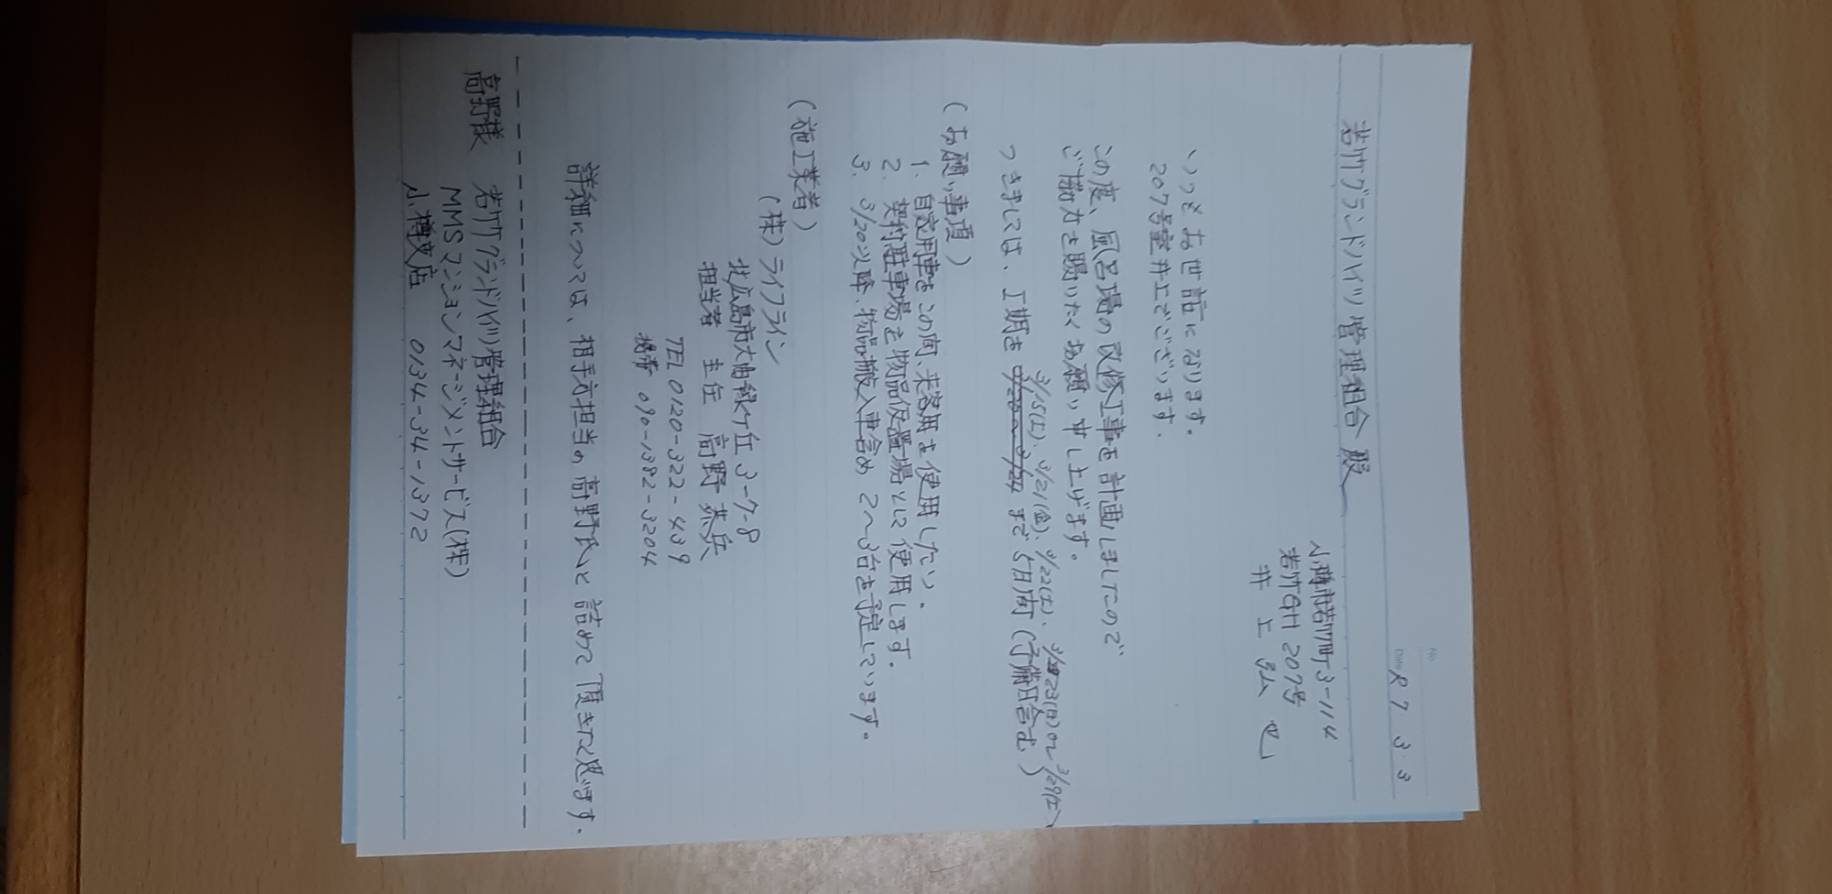 No.
Date R 7 3 3
若竹グランドハイツ管理組合 殿
小樽市若竹町3-114
若竹GH 207号
井上 弘 也
いつもお世話になります。
207号室井上でございます.
この度、風呂場の改修工事を計画しましたので
ご協力を賜りたくお願い申し上げます。
3/15(土)、3/21(金)、3/22(土)、3/23(日) or 3/29(土)
つきましては、工期を まで5日間(予備日含む)
(お願い事項)
1. 自家用車をこの間、来客用を使用したい.
2. 契約駐車場を物品仮置場として使用します.
3. 3/20以降、物品搬入車含め2〜3台を予定しています。
(施工業者)
(株)ライフライン
北広島市大曲緑ヶ丘3-7-8
担当者 主任 高野 恭兵
TEL 0120-322-439
携帯 090-1382-3204
詳細については、相手方担当の高野氏と詰めて頂きたく思います.
高野様 若竹グランドハイツ管理組合
MMSマンションマネージメントサービス(株)
小樽支店 0134-34-1372